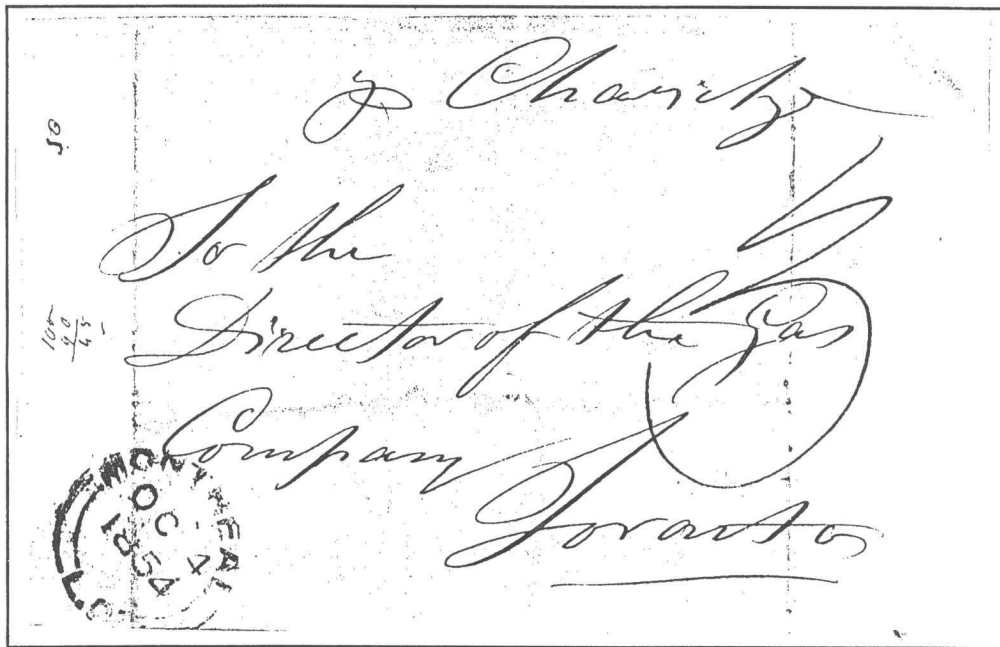 Charity
To the
Director of the Gas
Company
Toronto
MONTREAL
L.C
OC 4
1854